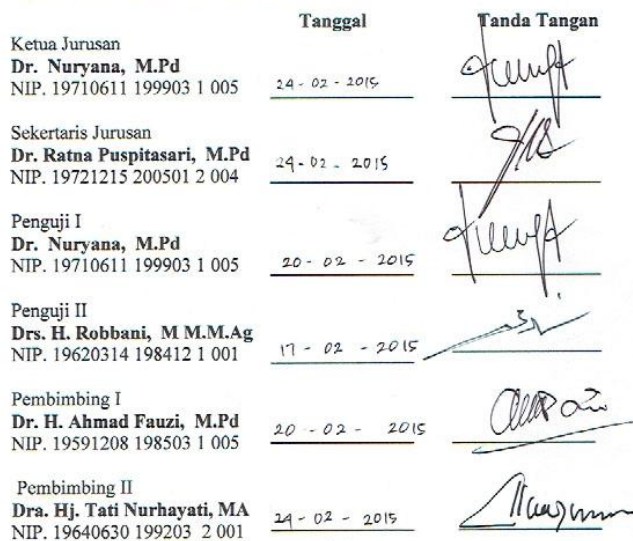 Tanggal Tanda Tangan
Ketua Jurusan
Dr. Nuryana, M.Pd
NIP. 19710611 199903 1 005 24-02-2015
Sekertaris Jurusan
Dr. Ratna Puspitasari, M.Pd
NIP. 19721215 200501 2 004 24-02-2015
Penguji I
Dr. Nuryana, M.Pd
NIP. 19710611 199903 1 005 20-02-2015
Penguji II
Drs. H. Robbani, M M.M.Ag
NIP. 19620314 198412 1 001 17-02-2015
Pembimbing I
Dr. H. Ahmad Fauzi, M.Pd
NIP. 19591208 198503 1 005 20-02-2015
Pembimbing II
Dra. Hj. Tati Nurhayati, MA
NIP. 19640630 199203 2 001 24-02-2015